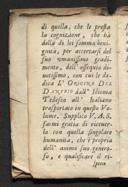 di quella, che le presta
la cognizione, che hà
della di lei somma beni-
gnità, per accertarsi del
suo umanissimo gradi-
mento, dell' ossequio di-
votissimo, con cui le de-
dica L'
DANZIO dall' Idioma
Tedesco all' Italiano
trasportato in questo Vo-
lume. Supplico V. A. S.
farmi grazia di riceve-
re con quella singolare
humanità, che è propria
dell' animo suo genero-
so, e qualificare il ri-